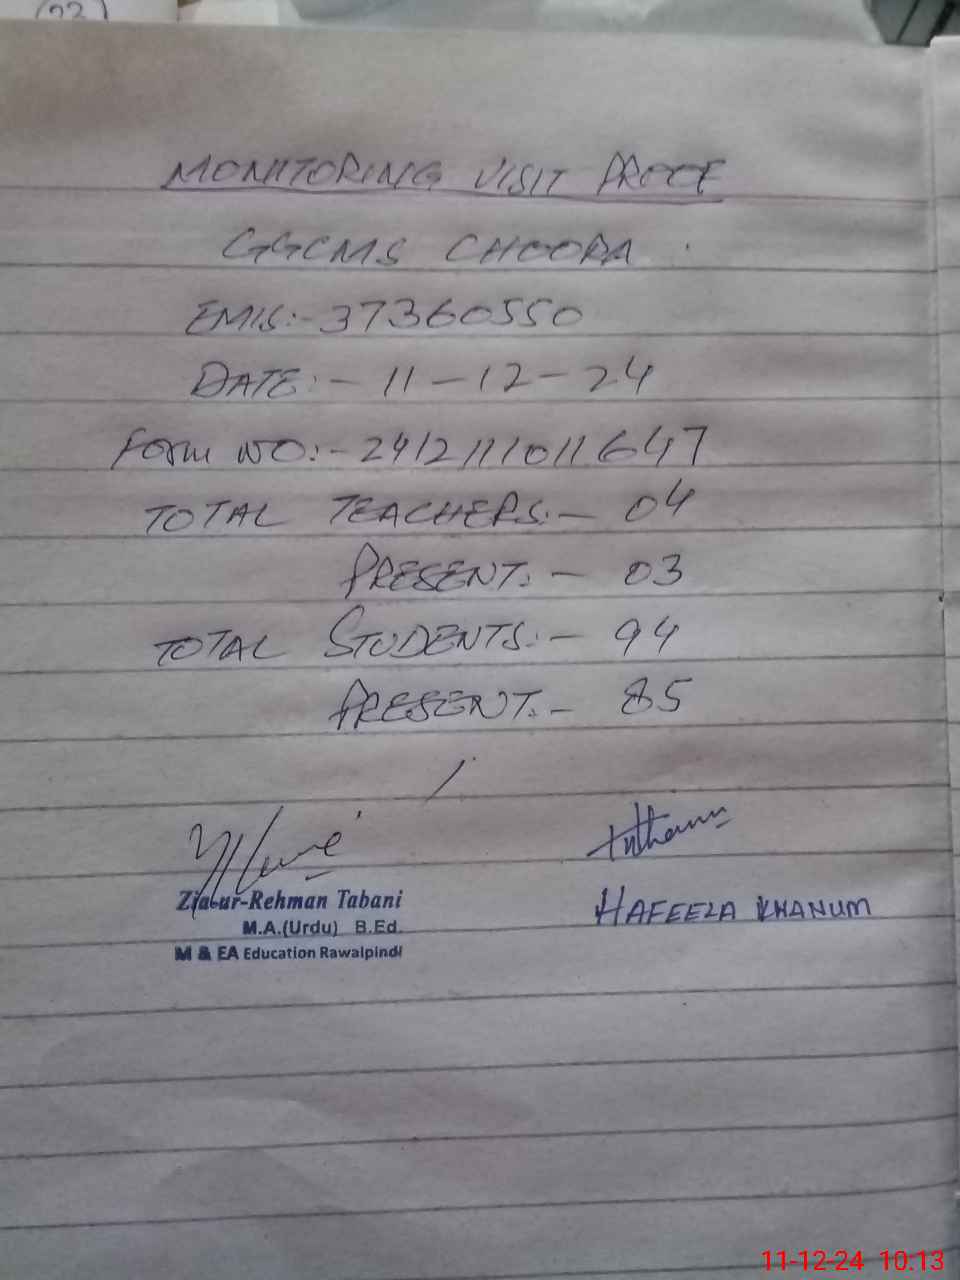 (23)
MONITORING VISIT PROOF
GGCMS CHOORA
EMIS:- 37360550
DATE:- 11-12-24
Form NO:- 2412111011647
TOTAL TEACHERS:- 04
PRESENT:- 03
TOTAL STUDENTS:- 94
PRESENT:- 85
Zia-ur-Rehman Tabani
HAFEEZA KHANUM
M.A.(Urdu) B.Ed
M & EA Education Rawalpindi
11-12-24 10:13